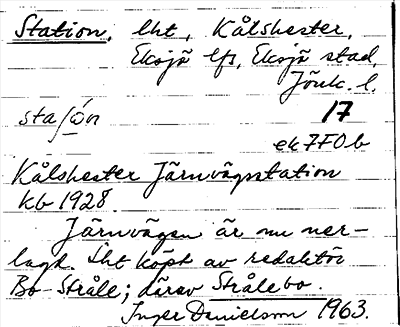 Station, lht, Kålshester,
Eksjö lfs, Eksjö stad,
Jönk. l.
sta/ón 17
ek 7F0b
Kålshester Järnvägsstation
kb 1928.
Järnvägen är nu ner-
lagd. Lht köpt av redaktör
Bo Stråle; därav Strålebo.
Inger Danielsson 1963.